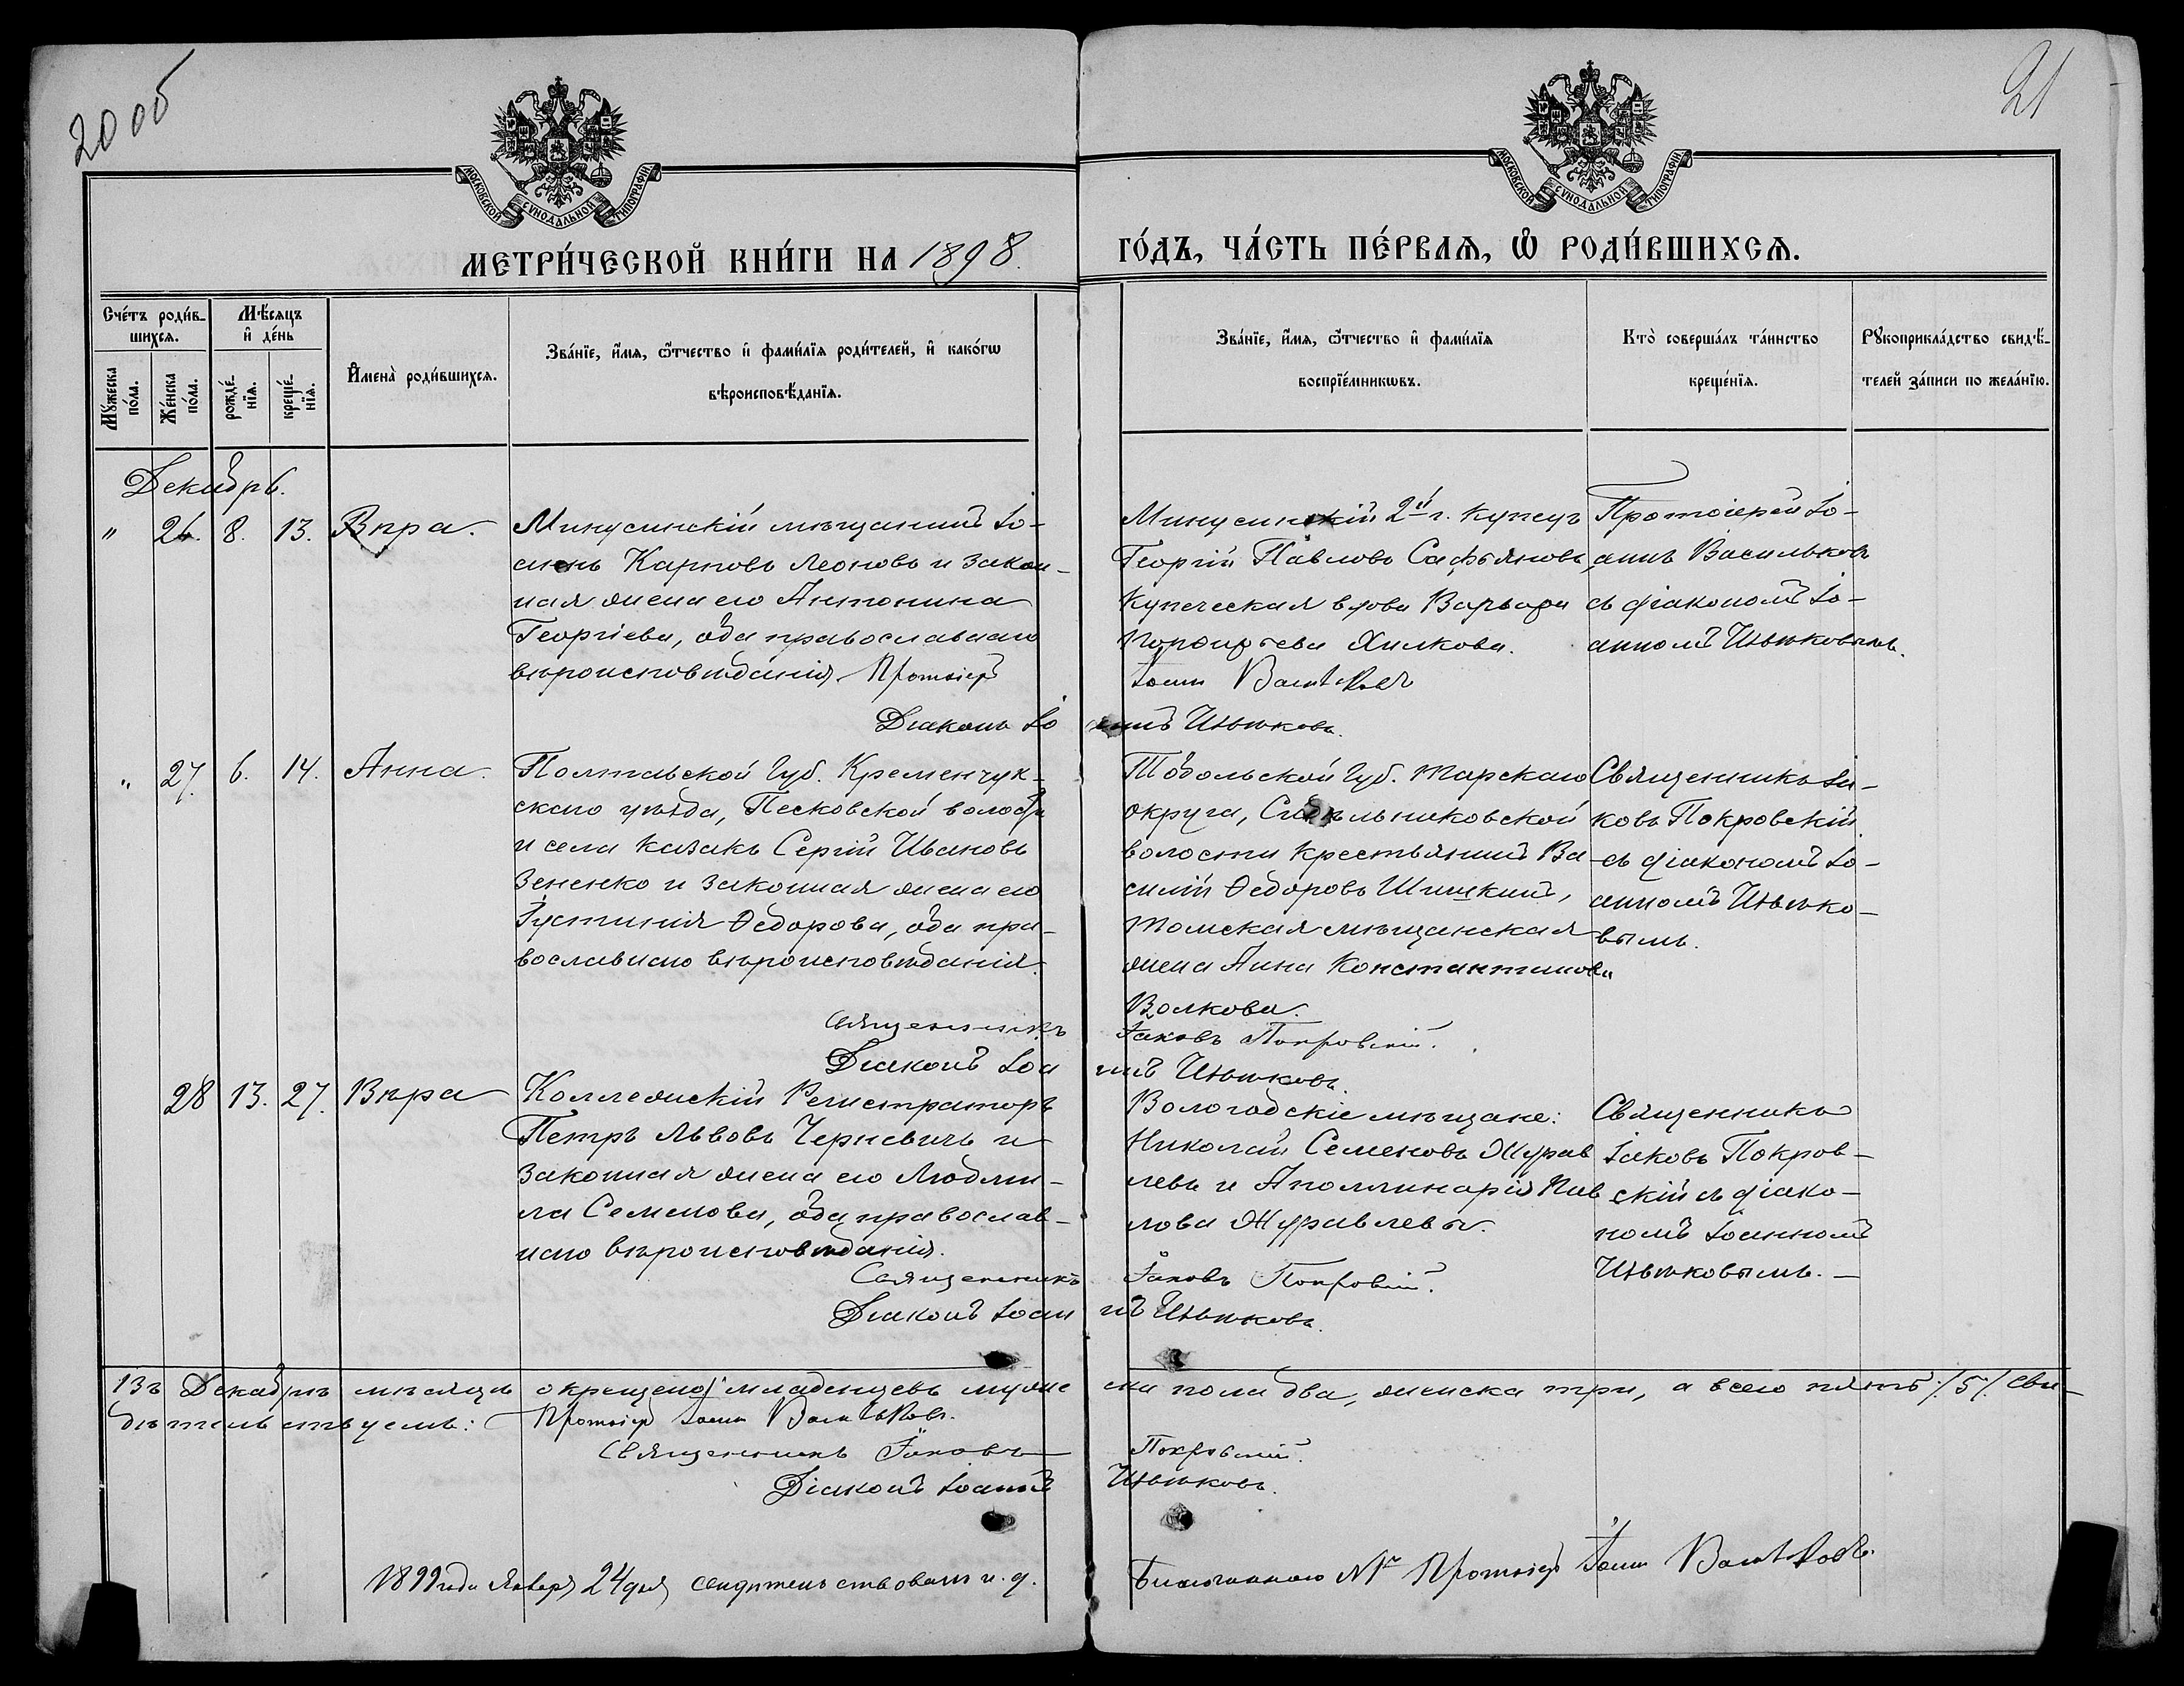 20 об
21
МОСКОВСКОЙ СѴНОДАЛЬНОЙ ТИПОГРАФІИ
МОСКОВСКОЙ СѴНОДАЛЬНОЙ ТИПОГРАФІИ
МЕТРИ́ЧЕСКОЙ КНИ́ГИ НА 1898.
ГО́ДЪ, ЧА́СТЬ ПЕ́РВАѦ, Ѡ҆ РОДИ́ВШИХСѦ.
Сче́тъ роди́в-
шихсѧ.
Мꙋ́жеска
по́ла.
Же́нска
по́ла.
Мѣ́сѧцъ
и҆ де́нь
рожде́-
нїѧ.
креще́-
нїѧ.
И҆мена̀ роди́вшихсѧ.
Зва́нїе, и҆́мѧ, ѻ҆́тчество и҆ фами́лїѧ роди́телей, и҆ како́гѡ
вѣроисповѣ́данїѧ.
Зва́нїе, и҆́мѧ, ѻ҆́тчество и҆ фами́лїѧ
воспрїе́мникѡвъ.
Кто̀ соверша́лъ та́инство
креще́нїѧ.
Рꙋкоприкла́дство свидѣ́-
телей за́писи по жела́нїю.
Декабрь.
" 26. 8. 13. Вѣра.
Минусинскій мѣщанинъ Іо-
сифъ Карповъ Леоновъ и закон-
ная жена его Антонина
Георгіева, оба православнаго
вѣроисповѣданія. Протоіер
Минусинскій 2й г. купецъ
Георгій Павловъ Сафьяновъ,
купеческая вдова Варвара
Порфирьева Хилкова.
Іоаннъ Васильковъ
Протоіерей Іо-
аннъ Васильковъ
съ діакономъ Іо-
анномъ Ивѣтковымъ.
Діаконъ Іоаннъ Ивѣтковъ.
" 27. 6. 14. Анна.
Полтавской Губ. Кременчук-
скаго уѣзда, Песковской волости
и села казакъ Сергій Ивановъ
Зененко и законная жена его
Іустинія Ѳедорова, оба пра-
вославнаго вѣроисповѣданія.
Тобольской Губ. Тарскаго
округа, Сидѣльниковской
волости крестьянинъ Ва-
силій Ѳедоровъ Шишкинъ,
Томская мѣщанская
жена Анна Константинова
Волкова.
Священникъ Іа-
ковъ Покровскій
съ діакономъ Іо-
анномъ Ивѣтко-
вымъ.
Священникъ Іаковъ Покровскій.
Діаконъ Іоаннъ Ивѣтковъ.
28 13. 27. Вѣра
Коллежскій Регистраторъ
Петръ Львовъ Черневичъ и
законная жена его Людми-
ла Семенова, оба православ-
наго вѣроисповѣданія.
Вологодскіе мѣщане:
Николай Семеновъ Журав
левъ и Аполлинарія Пав
лова Журавлевы.
Священникъ
Іаковъ Покров-
скій съ діако-
номъ Іоанномъ
Ивѣтковымъ. —
Священникъ Іаковъ Покровскій.
Діаконъ Іоаннъ Ивѣтковъ.
Въ Декабрѣ мѣсяцѣ окрещено младенцевъ муже ска пола два, женска три, а всего пять /5/. Сви-
дѣтельствуемъ: Протоіер Іоаннъ Васильковъ.
Священникъ Іаковъ Покровскій.
Діаконъ Іоаннъ Ивѣтковъ.
1899 года Января 24 дня свидѣтельствовалъ и. д. Благочиннаго Протоіер Іоаннъ Васильковъ.